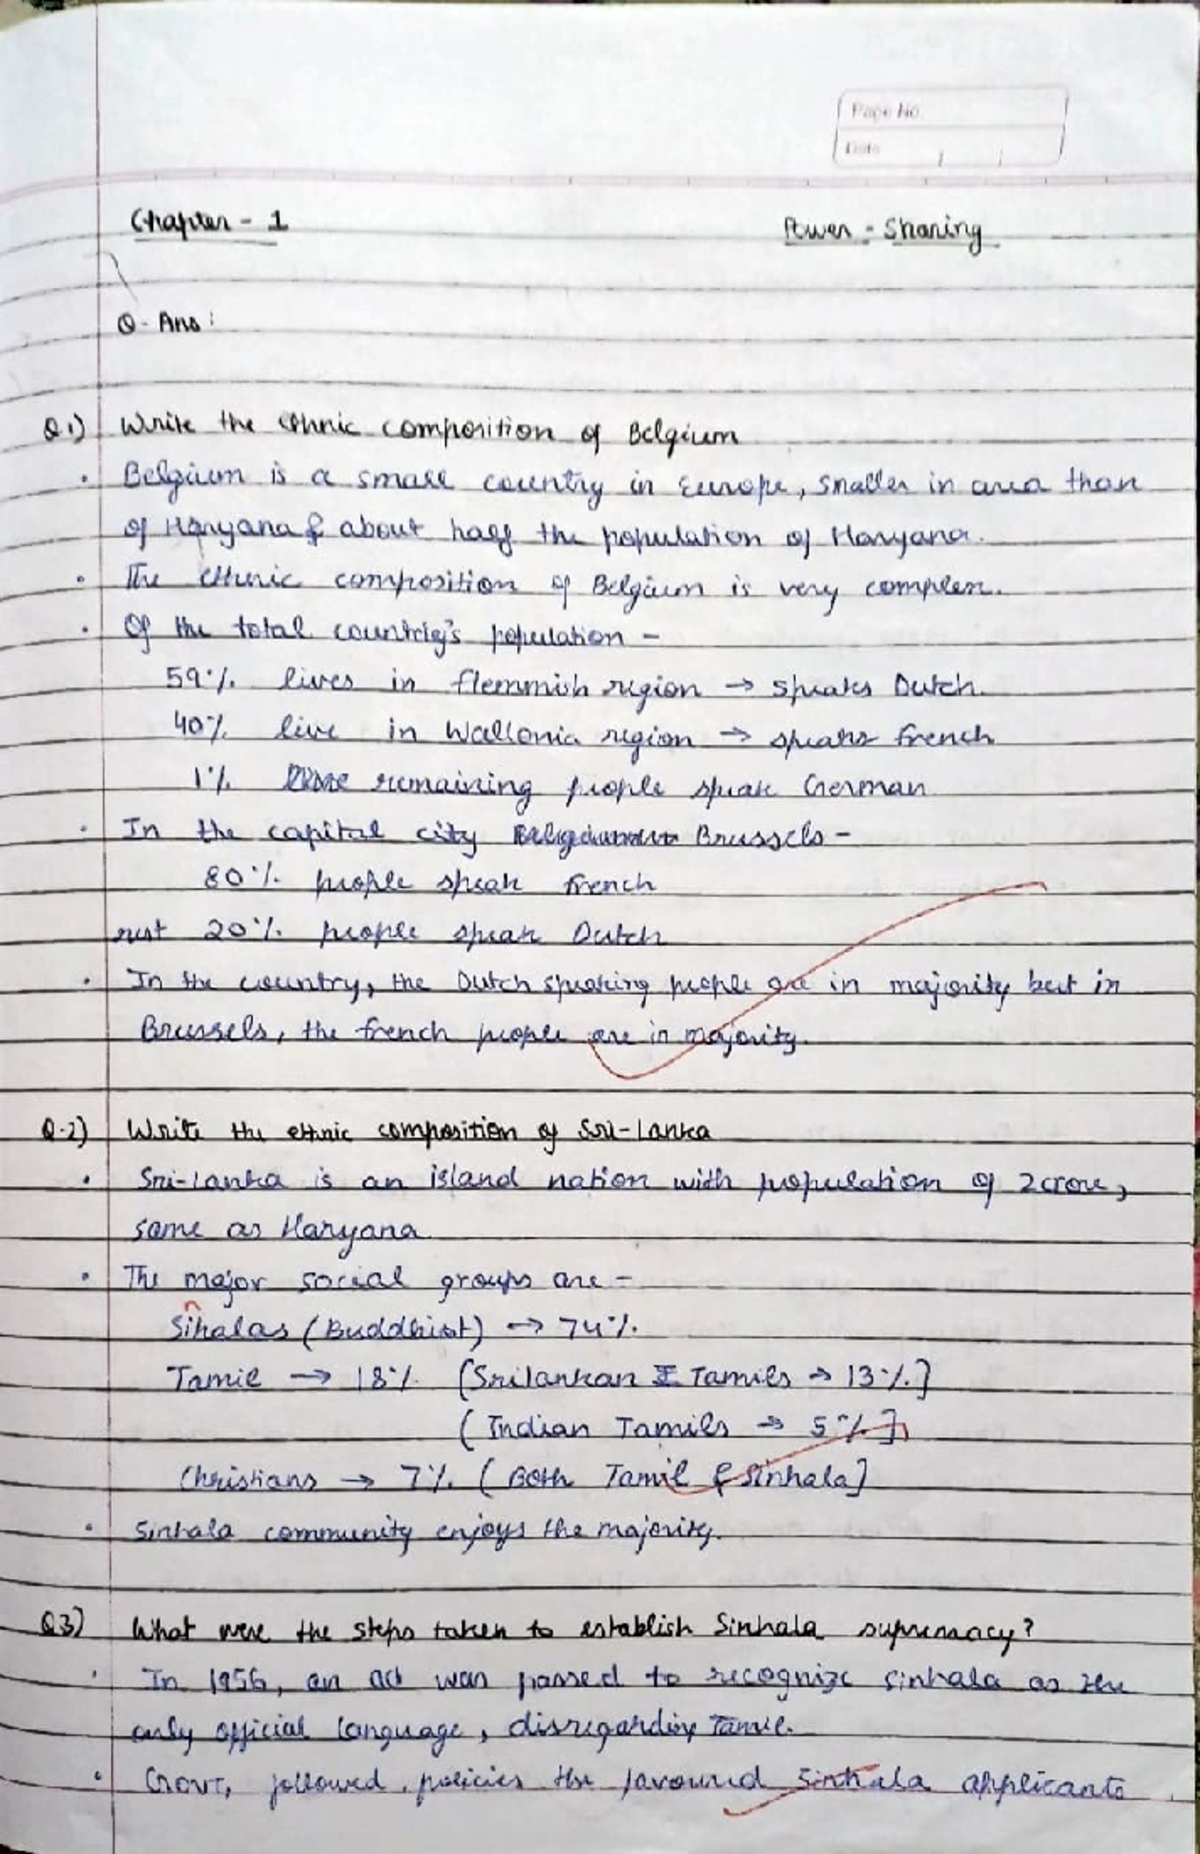 Page No.
Date
Chapter - 1 Power - Sharing
Q - Ans :
Q.1) Write the ethnic composition of Belgium
• Belgium is a small country in Europe, smaller in area than
of Haryana & about half the population of Haryana.
• The ethnic composition of Belgium is very complex.
• Of the total country's population -
59% lives in flemmish region → speaks Dutch.
40% live in Wallonia region → speaks french
1% remaining people speak German
• In the capital city Brussels -
80% people speak french
rest 20% people speak Dutch
• In the country, the Dutch speaking people are in majority but in
Brussels, the french people are in majority.
Q.2) Write the ethnic composition of Sri-Lanka
• Sri-Lanka is an island nation with population of 2 crore,
same as Haryana
• The major social groups are -
n
Sihalas (Buddhist) → 74%.
Tamil → 18% [Srilankan Tamils → 13%.]
( Indian Tamils → 5%]
Christians → 7%. ( Both Tamil & Sinhala]
• Sinhala community enjoys the majority.
Q3) What were the steps taken to establish Sinhala supremacy?
• In 1956, an act was passed to recognize Sinhala as the
only official language, disregarding Tamil.
• Govt, followed policies the favoured Sinhala applicants